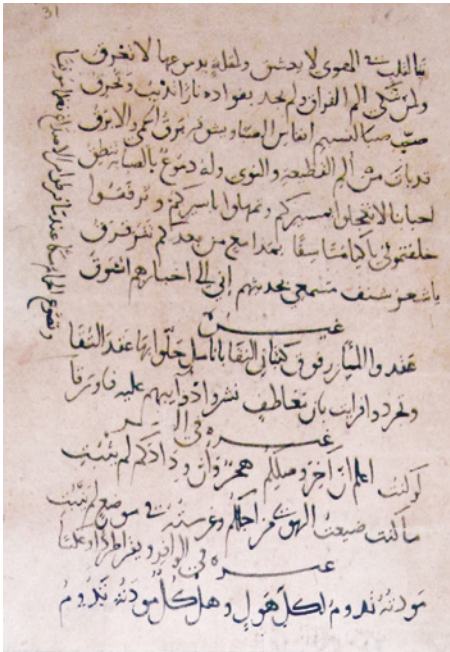 31
ما لقلب في الهوى لا يعشق ولمقلة بدموعها لا تغرق
ولمن شكى الم الفراق ولم يجد بفواده نارا تذيب وتحرق
صبّ صبا لنسيم انفاس الصبا ويشوقه برق الحمى والابرق
قد بات من الم القطيعة والنوى وله دموع بالصبابة تنطق
احبابنا لا تعجلوا بمسيركم وتمهلوا باسيركم وترفقوا
خلفتموني باكيا متاسفا بمدامع من بعدكم
شنف مسمعي بحديثهم اني الى اخبارهم اتشوق
غيره
عقدوا فوق كثبان النقا حلّوا بها عقد التقا
وتجردوا فرايت بان معاطف نشروا ذوايبهم عليه فاورقا
غيره في
لو كنت اعلم انّ اخر وصلكم هجر وانّ ودادكم لم يثبت
ما كنت ضيعت الهوى من اجلكم وغرسته في موضع لم ينبت
غيره في الوافر ويقرا طردا وعكسا
مودته تدوم لكل هول وهل كل مودته تدوم